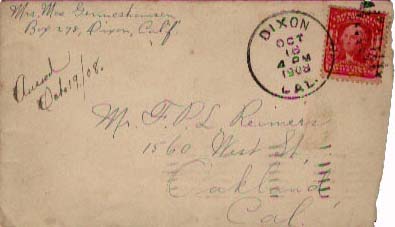 Mrs. Max Germeshausen
Box 278, Dixon, Calf.
DIXON
OCT
16
4 PM
1908
CAL.
Oct 19/08.
Mr. F. P. L. Reimers
1560 West St.,
Oakland
Cal.